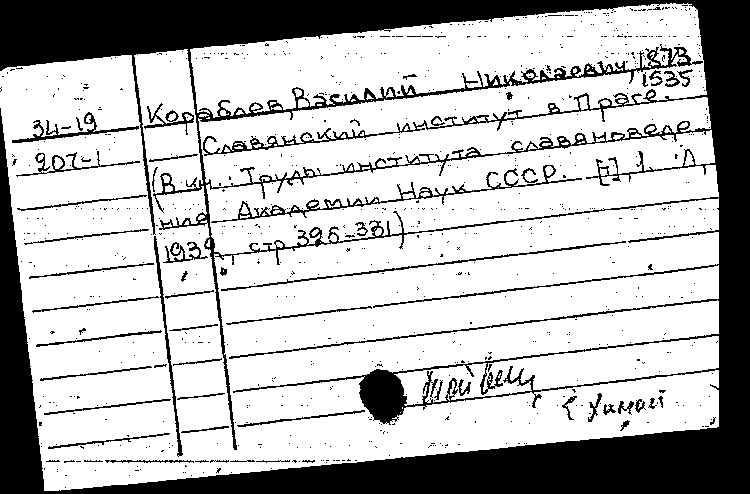 34-19
207-1
Кораблев, Василий Николаевич, 1873
1535
Славянский институт в Праге.
(В кн.: Труды института славяноведе-
ния Академии Наук СССР. [т], 1. Л,
1932, стр. 325-331).